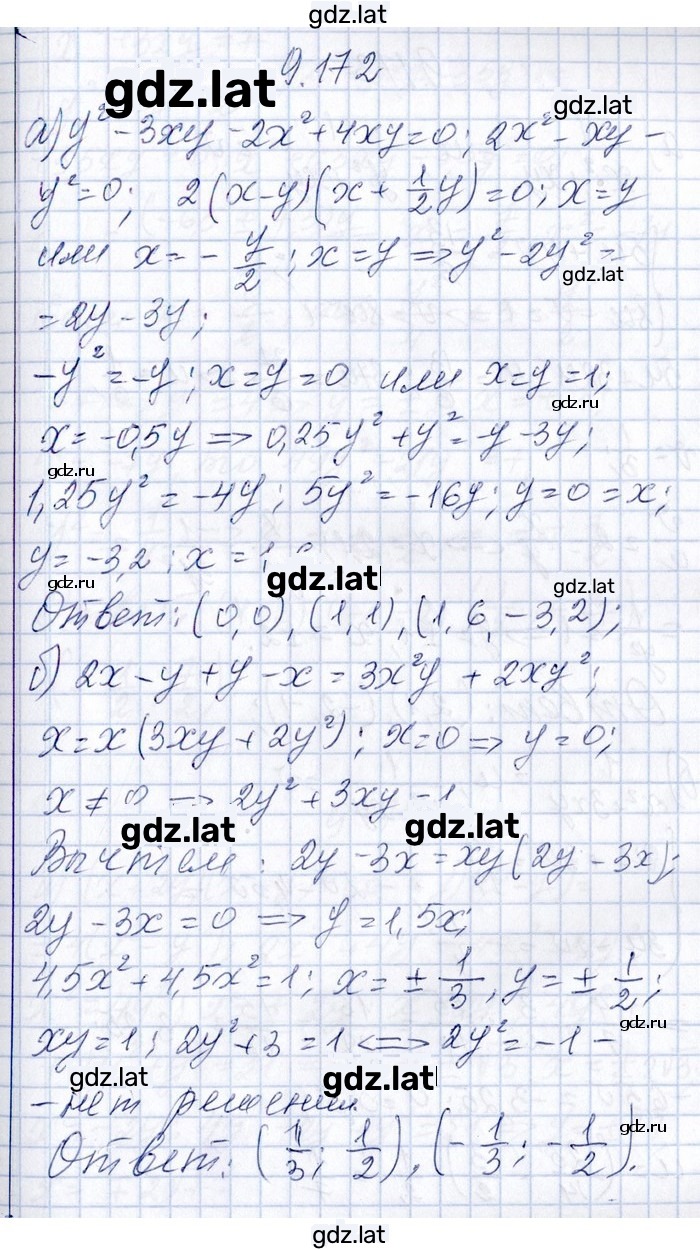 gdz.lat
9.172
gdz.lat
gdz.lat
а) y² - 3xy - 2x² + 4xy = 0; 2x² - xy -
y² = 0; 2(x-y)(x + 1/2 y) = 0; x = y
или x = - y/2; x = y => y² - 2y² =
gdz.lat
= 2y - 3y;
-y² = -y; x = y = 0 или x = y = 1;
gdz.ru
x = -0,5y => 0,25y² + y² = -y - 3y;
gdz.ru
1,25y² = -4y; 5y² = -16y; y = 0 = x;
y = -3,2; x = 1,
gdz.ru
gdz.lat
gdz.lat
Ответ: (0,0), (1,1), (1,6, -3,2);
б) 2x - y + y - x = 3x²y + 2xy²;
x = x(3xy + 2y²); x = 0 => y = 0;
x ≠ 0 => 2y² + 3xy - 1
gdz.lat
gdz.lat
Вычтем: 2y - 3x = xy(2y - 3x);
2y - 3x = 0 => y = 1,5x;
4,5x² + 4,5x² = 1; x = ± 1/3, y = ± 1/2;
xy = 1; 2y² + 3 = 1 <=> 2y² = -1 -
gdz.lat
gdz.lat
gdz.lat
- нет решений.
gdz.ru
Ответ: (1/3; 1/2), (-1/3; -1/2).
gdz.lat